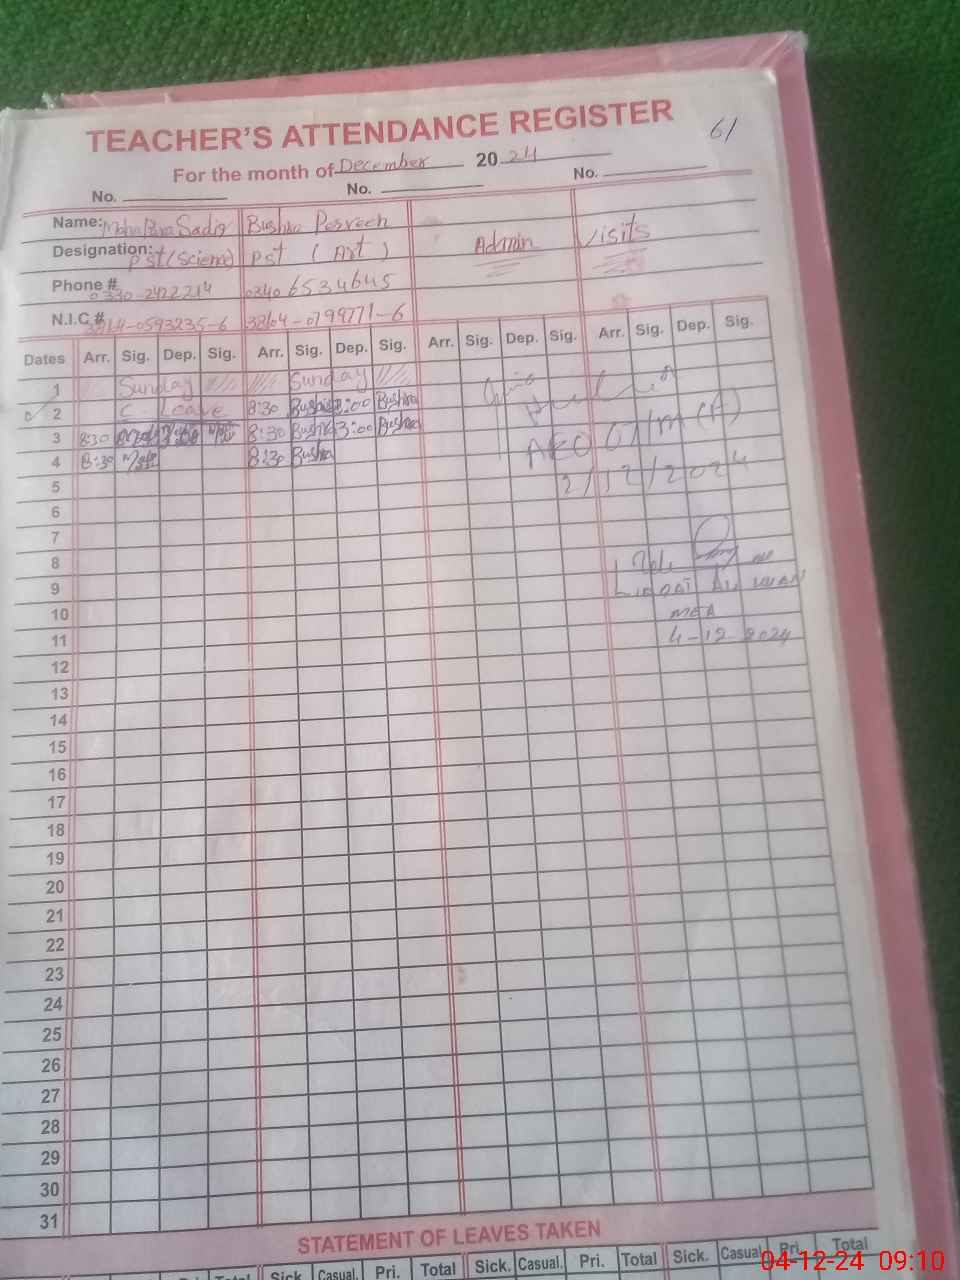 TEACHER'S ATTENDANCE REGISTER
61
For the month of December 2024
No. No. No.
Name: Sadiq Bushra Perveen
Designation: Pst (Science) Pst (Art) Admin Visits
Phone # 0330-2422214 0340 6534645
N.I.C.# 0593235-6 38104-0799771-6
Dates Arr. Sig. Dep. Sig. Arr. Sig. Dep. Sig. Arr. Sig. Dep. Sig. Arr. Sig. Dep. Sig.
1 Sunday Sunday
2 C. Leave 8:30 Bushra 3:00 Bushra
3 8:30 3:00 8:30 Bushra 3:00 Bushra
4 8:30 8:30 Bushra
AEO (F)
2/12/2024
5
6
7
8
9
10
MEA
11
4-12-2024
12
13
14
15
16
17
18
19
20
21
22
23
24
25
26
27
28
29
30
31
STATEMENT OF LEAVES TAKEN
Total Sick Casual. Pri. Total Sick. Casual. Pri. Total Sick. Casual Pri. Total
04-12-24 09:10